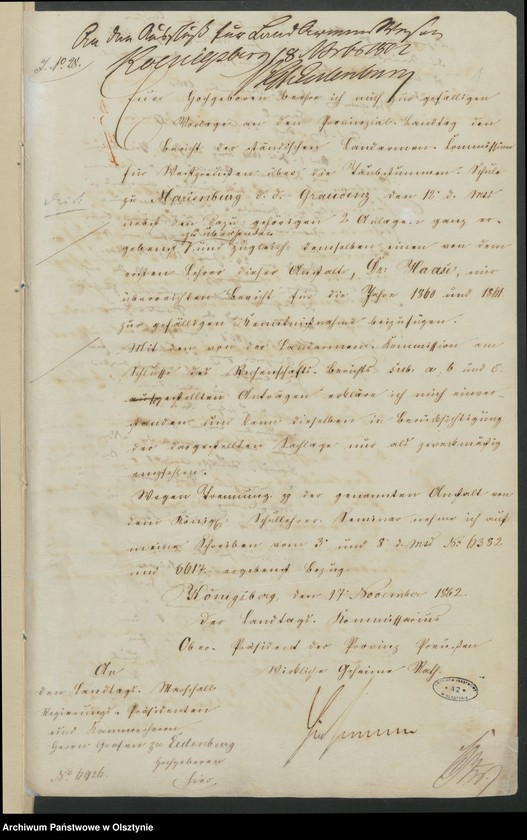 An den Ausschuß für Landarmen Wesen
J. No 28.
Koenigsberg 18 Novbr 1862
Eulenburg
Euer Hochgeboren beehre ich mich zur gefälligen
Vorlage an den Provinzial-Landtag den
Bericht der ständischen Landarmen-Commission
für Westpreußen über die Taubstummen-Schule
zu Marienburg d. d. Graudenz den 12 d. Mts
nebst den dazu gehörigen 2 Anlagen ganz er-
zu übersenden
gebenst und zugleich demselben einen von dem
ersten Lehrer dieser Anstalt, Dr. Haase, mir
überreichten Bericht für die Jahre 1860 und 1861
zur gefälligen Kenntnißnahme beizufügen.
Mit den von der Landarmen-Kommission am
Schlusse des Rechenschafts-Berichts sub. a, b und c.
gestellten Anträgen erkläre ich mich einver-
standen und kann dieselben in Berücksichtigung
der dargestellten Sachlage nur als zweckmäßig
empfehlen.
Wegen Trennung der genannten Anstalt von
dem Königl. Schullehrer-Seminar nehme ich auf
meine Schreiben vom 3 und 8 d. Mts No 6382
und 6617. ergebenst Bezug.
Königsberg, den 17 November 1862.
Der Landtags-Kommissarius
Ober-Präsident der Provinz Preußen
Wirkliche Geheime Rath.
An
den Landtags-Marschall
Regierungs-Präsidenten
und Kammerherrn
Herrn Grafen zu Eulenburg
Hochgeboren
hier.
No 6926.
42
Archiwum Państwowe w Olsztynie